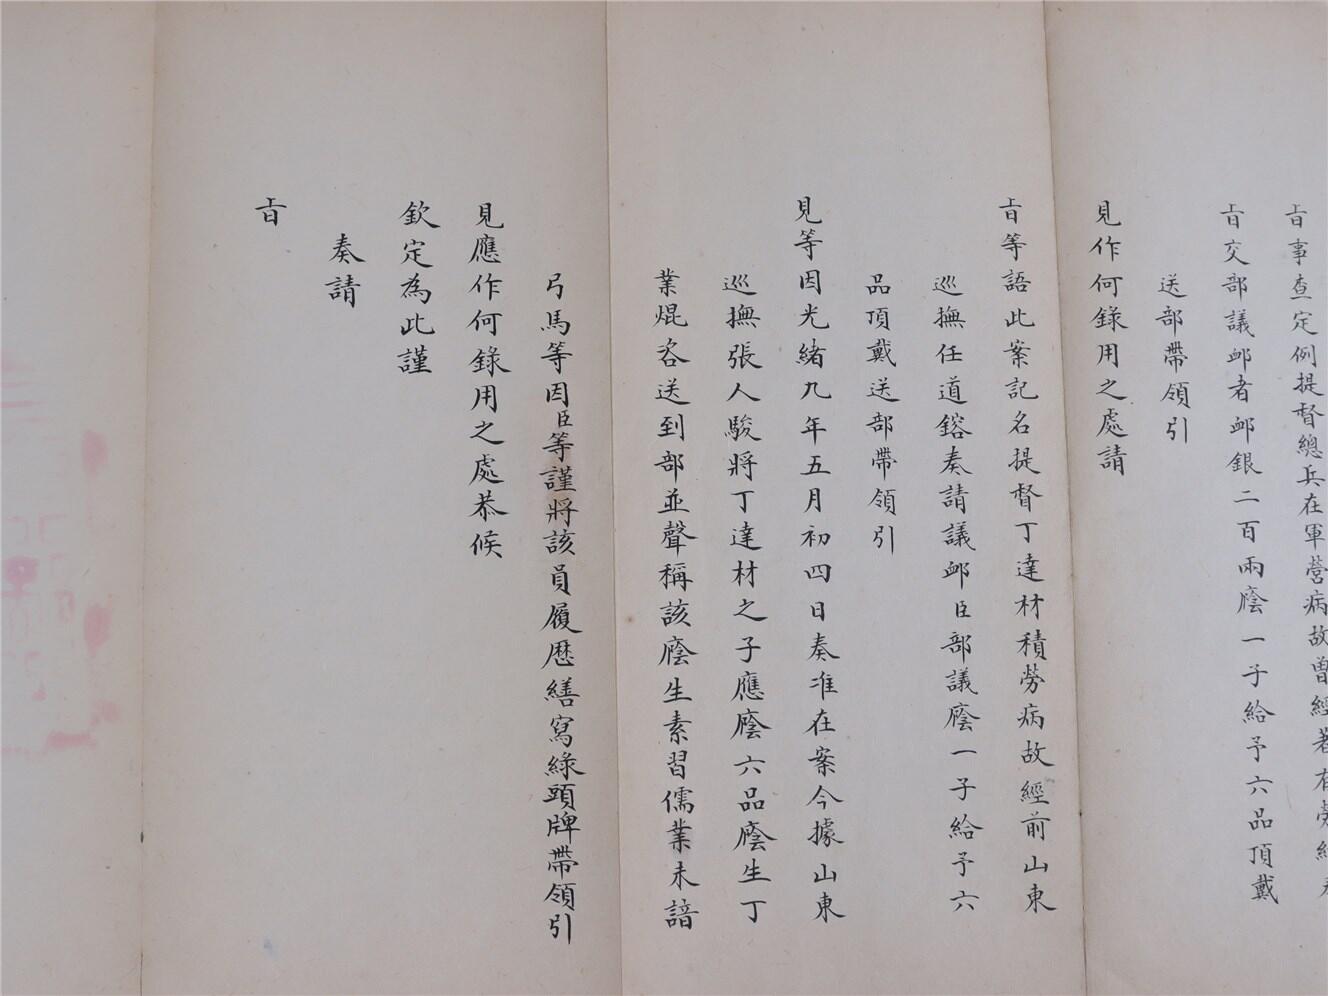 旨事查定例提督總兵在軍營病故曾經著有勞績
旨交部議卹者卹銀二百兩廕一子給予六品頂戴
送部帶領引
見作何錄用之處請
旨等語此案記名提督丁達材積勞病故經前山東
巡撫任道鎔奏請議卹臣部議廕一子給予六
品頂戴送部帶領引
見等因光緒九年五月初四日奏准在案今據山東
巡撫張人駿將丁達材之子應廕六品廕生丁
業焜咨送到部並聲稱該廕生素習儒業未諳
弓馬等因臣等謹將該員履歷繕寫綠頭牌帶領引
見應作何錄用之處恭候
欽定為此謹
奏請
旨